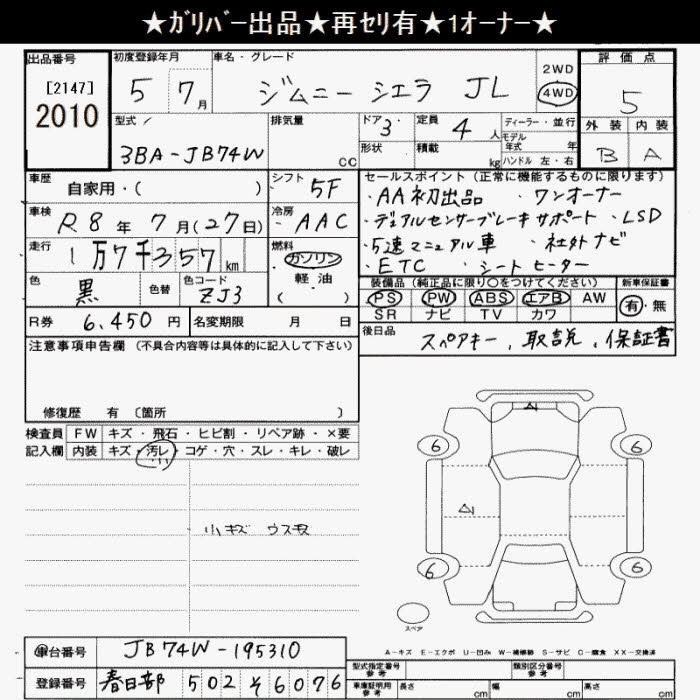 ★ガリバー出品★再セリ有★1オーナー★
出品番号
[2147]
2010
初度登録年月
5 7月
車名・グレード
ジムニー シエラ JL
2WD
4WD
評価点
5
外装 内装
B A
型式
3BA-JB74W
排気量
cc
ドア 3
形状
定員 4人
積載 kg
ディーラー・並行
モデル
年式 年
ハンドル 左・右
車歴
自家用・( )
シフト
5F
車検
R8年7月(27日)
冷房
AAC
走行
1万7千357km
燃料
ガソリン
軽油
( )
色
黒
色替
色コード
ZJ3
R券 6,450円
名変期限 月 日
セールスポイント(正常に機能するものに限ります)
・AA初出品 ・ワンオーナー
・デュアルセンサーブレーキサポート ・LSD
・5速マニュアル車 ・社外ナビ
・ETC ・シートヒーター
装備品(純正品に限り○をつけてください)
PS PW ABS エアB AW
SR ナビ TV カワ
新車保証書
有・無
後日品
スペアキー、取説、保証書
注意事項申告欄(不具合内容等は具体的に記入して下さい)
修復歴 有 〔箇所 〕
検査員 FW キズ・飛石・ヒビ割・リペア跡・×要
記入欄 内装 キズ・汚レ・コゲ・穴・スレ・キレ・破レ
小キズ ウスキズ
A1
6 6
A1
6 6
スペア
A-キズ E-エクボ U-凹み W-補修跡 S-サビ C-腐食 XX-交換済
車台番号 JB74W-195310
登録番号 春日部 502 そ 6076
型式指定番号
参考
類別区分番号
参考
車庫証明用
参考
長さ cm 幅 cm 高さ cm